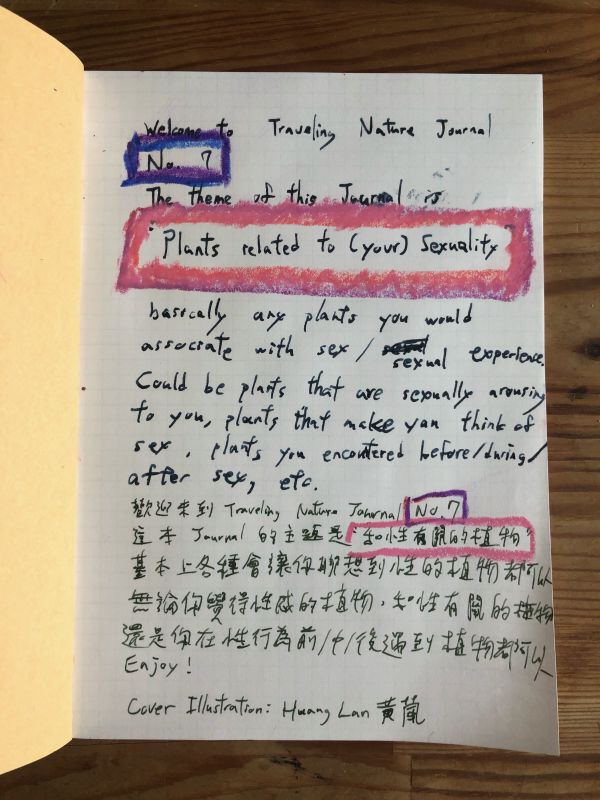 Welcome to Traveling Nature Journal
No. 7
The theme of this Journal is
"Plants related to (your) Sexuality"
basically any plants you would
associate with sex / sexual experience.
Could be plants that are sexually arousing
to you, plants that make you think of
sex, plants you encountered before/during/
after sex, etc.
歡迎來到 Traveling Nature Journal No. 7
這本 Journal 的主題是 "和性有關的植物"
基本上各種會讓你聯想到性的植物都可以
無論你覺得性感的植物，和性有關的植物
還是你在性行為前/中/後遇到植物都可以
Enjoy!
Cover Illustration: Huang Lan 黃